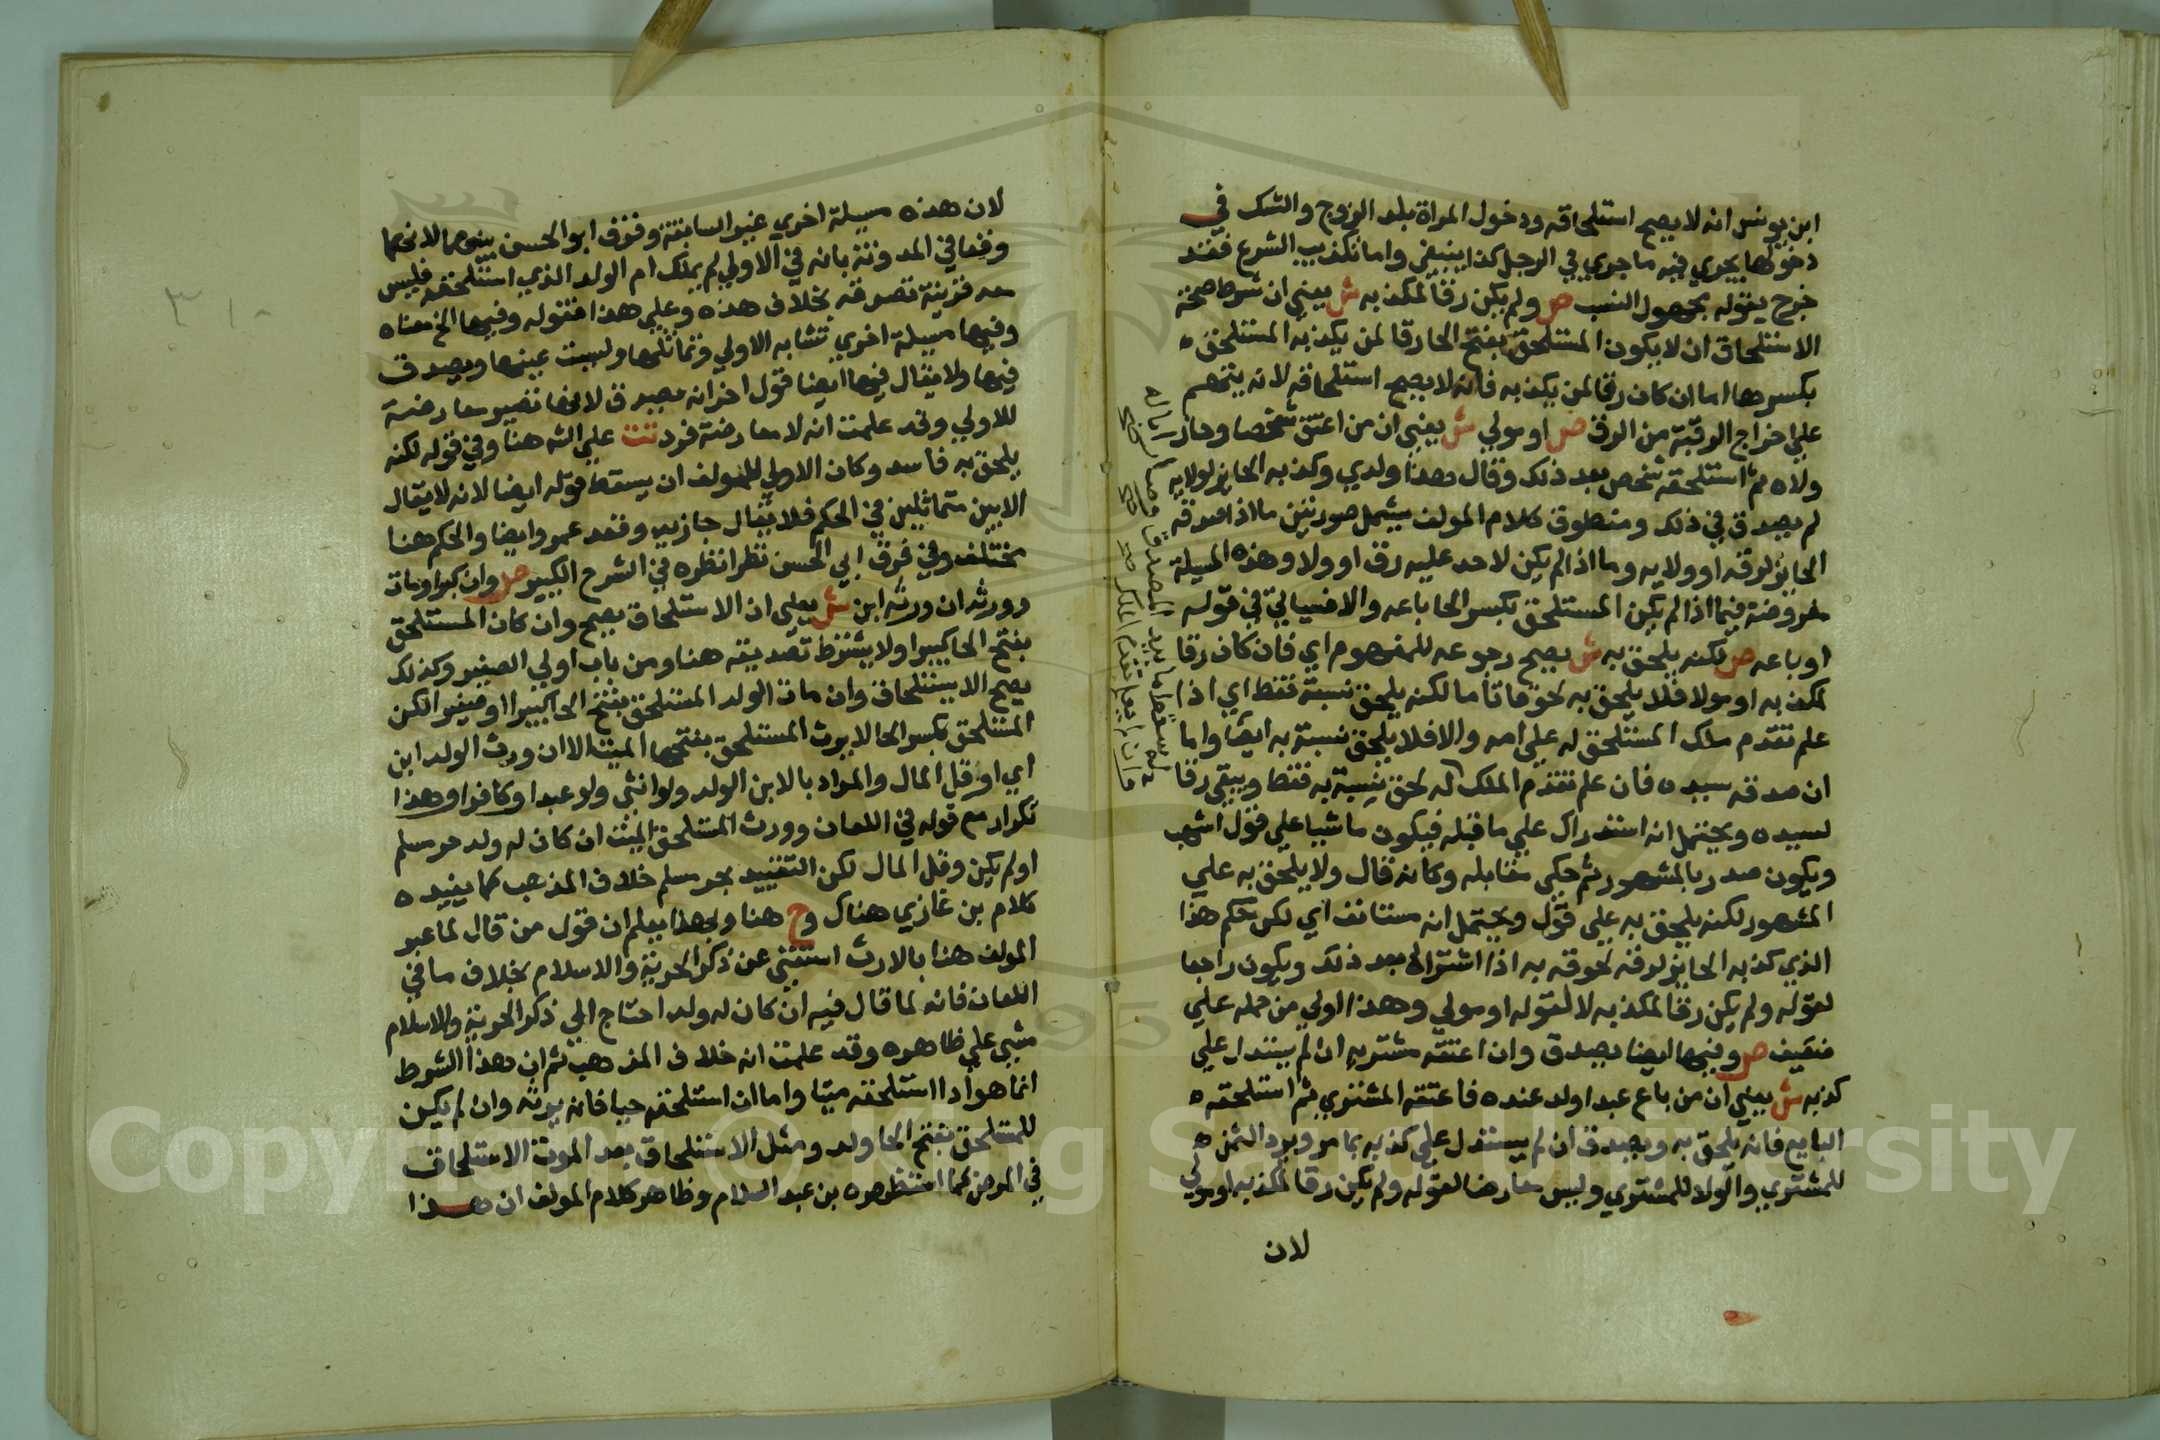 ابن يونس انه لا يصح استلحاقه ودخول المراة بلد الزوج والشك في
دخولها يجري فيه ما جري في الرجل كذا ينبغي واما تكذيب الشرع فقد
خرج بقوله مجهول النسب ص ولم يكن رقا لمكذبه ش يعني ان شرط صحة
الاستلحاق ان لا يكون المستلحق بفتح الحا رقا لمن يكذبه المستلحق
بكسرها اما ان كان رقا لمن يكذبه فانه لا يصح استلحاقه لانه يتهم
علي اخراج الرقبة من الرق ص او مولي ش يعني ان من اعتق شخصا وحاز
ولاه ثم استلحقه شخص بعد ذلك وقال هذا ولدي وكذبه الحايز لولايه
لم يصدق في ذلك ومنطوق كلام المولف يشمل صورتين ما اذا صدقه
الحايز لرقه او ولايه وما اذا لم يكن لاحد عليه رق او ولا وهذه المسيلة
مفروضة فيما اذا لم يكن المستلحق بكسر الحا باعه والا فسياتي في قوله
او باعه ص لكنه يلحق به ش يصح رجوعه للمفهوم اي فان كان رقا
لمكذبه او مولا فلا يلحق به لحوقا تاما لكنه يلحق نسبة فقط اي اذا
علم تقدم ملك المستلحق له علي امه والا فلا يلحق نسبة به ايضا واما
ان صدقه سيده فان علم تقدم الملك له لحق نسبة به فقط ويبقي رقا
لسيده ويحتمل انه استدراك علي ما قبله فيكون ماشيا علي قول اشهب
ويكون صدر بالمشهور ثم حكي مقابله وكانه قال ولا يلحق به علي
المشهور لكنه يلحق به علي قول ويحتمل انه مستانف اي لكن حكم هذا
الذي كذبه الحايز لرقه لحوقه به اذا اشتراه بعد ذلك ويكون راجعا
لقوله ولم يكن رقا لمكذبه لا لقوله او مولي وهذا اولي من حمله علي
ضعيف ص وفيها ايضا يصدق وان اعتقه مشتريه ان لم يستدل علي
كذبه ش يعني ان من باع عبدا ولد عنده فاعتقه المشتري ثم استلحقه
البايع فانه يلحق به ويصدق ان لم يستدل علي كذبه بما مر ويرد الثمن
للمشتري والولا للمشتري وليس معارضا لقوله ولم يكن رقا لمكذبه او مولي
لان
لان هذه مسيلة اخري غير السابقة وفرق ابو الحسن بينهما لانهما
وقعا في المدونة بانه في الاولي لم يملك ام الولد الذي استلحقه فليس
معه قرينة تصدقه بخلاف هذه وعلي هذا فقوله وفيها الخ معناه
وفيها مسيلة اخري تشابه الاولي وتماثلها وليست عينها ويصدق
فيها ولا يقال فيها ايضا قول اخر انه يصدق لانها تصير معارضة
للاولي وقد علمت انه لا معارضة فرد تت علي الشه هنا وفي قوله لكنه
يلحق به فاسد وكان الاولي للمولف ان يسقط قوله ايضا لانه لا يقال
الا بين متماثلين في الحكم فلا يقال جا زيد وقعد عمرو ايضا والحكم هنا
مختلف وفي فرق ابي الحسن نظر انظره في الشرح الكبير ص وان كبر او مات
وورثه ان ورثه ابن ش يعني ان الاستلحاق يصح وان كان المستلحق
بفتح الحا كبيرا ولا يشترط تصديقه هنا ومن باب اولي الصغير وكذلك
يصح الاستلحاق وان مات الولد المستلحق بفتح الحا كبيرا او صغيرا لكن
المستلحق بكسر الحا لا يرث المستلحق بفتحها الميت الا ان ورث الولد ابن
اي او قل المال والمراد بالابن الولد ولو انثي ولو عبدا او كافرا وهذا
تكرار مع قوله في اللعان وورث المستلحق الميت ان كان له ولد حر مسلم
او لم يكن وقل المال لكن التقييد بحر مسلم خلاف المذهب كما يفيده
كلام بن غازي هناك وح هنا وبهذا يعلم ان قول من قال لما عبر
المولف هنا بالارث استغني عن ذكر الحرية والاسلام بخلاف ما في
اللعان فانه لما قال فيه ان كان له ولد احتاج الي ذكر الحرية والاسلام
مشي علي ظاهره وقد علمت انه خلاف المذهب ثم ان هذا الشرط
انما هو اذا استلحقه ميتا واما ان استلحقه حيا فانه يرثه وان لم يكن
للمستلحق بفتح الحا ولد ومثل الاستلحاق بعد الموت الاستلحاق
في المرض كما استظهره بن عبد السلام وظاهر كلام المولف ان هذا
٣١٠
Copyright © King Saud University
1957